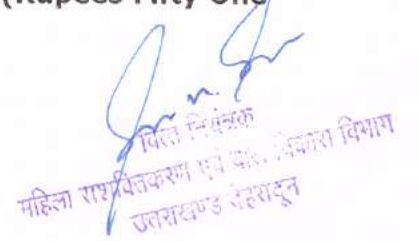 (Rupees Fifty One
वित्त नियंत्रक
महिला सशक्तिकरण एवं बाल विकास विभाग
उत्तराखण्ड देहरादून